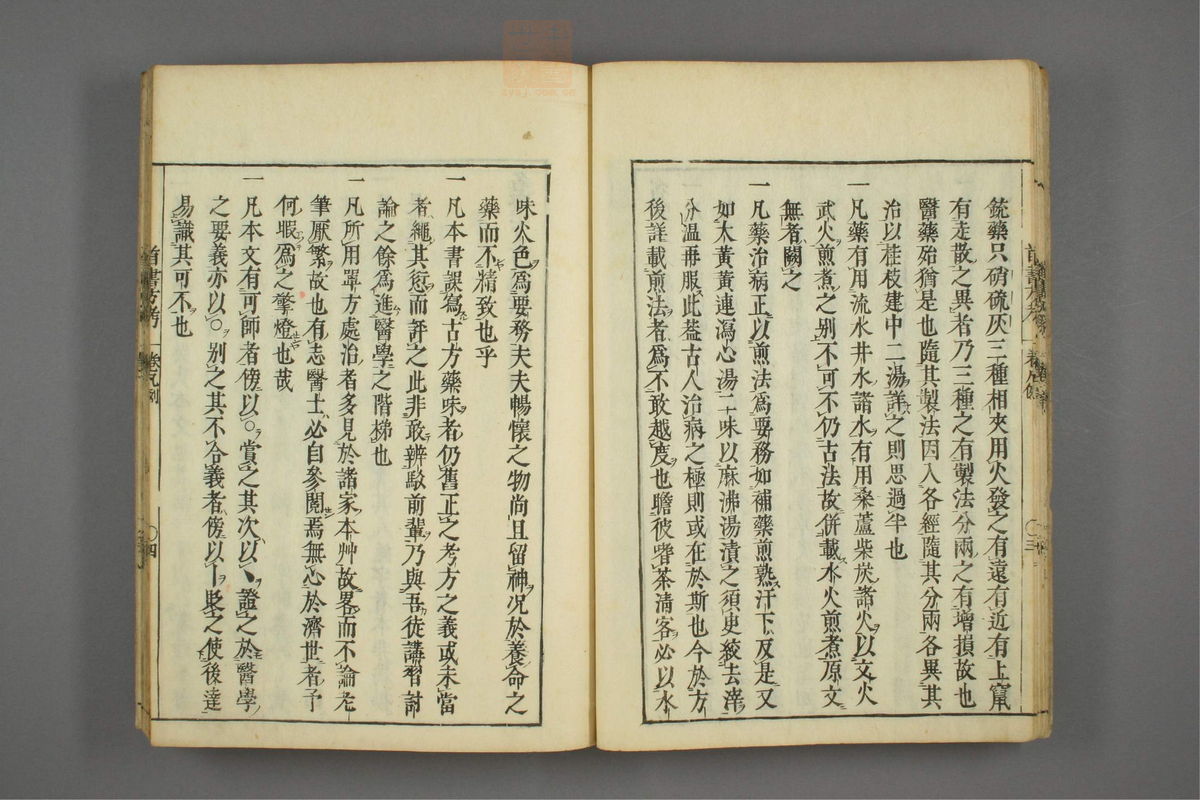 銃藥只硝硫灰三種相夾用火發之有遠有近有上竄
有走散之異者乃三種之有製法分兩之有增損故也
醫藥殆猶是也隨其製法因入各經隨其分兩各異其
治以桂枝建中二湯詳之則思過半也
一凡藥有用流水井水諸水有用桑蘆柴炭諸火以文火
武火煎煮之别不可不仍古法故併載水火煎煮原文
無者闕之
一凡藥治病正以煎法爲要務如補藥煎熟汗下及是又
如大黄黄連瀉心湯二味以麻沸湯漬之須臾絞去滓
分温再服此葢古人治病之極則或在於斯也今於方
後詳載煎法者爲不敢越度也瞻彼嗜茶淸客必以水
味火色爲要務夫夫暢懷之物尚且留神况於養命之
藥而不精致也乎
一凡本書誤寫古方藥味者仍舊正之考方之義或未當
者繩其愆而評之此非敢辨駁前輩乃與吾徒講習討
論之餘爲進醫學之階梯也
一凡所用單方處治者多見於諸家本艸故畧而不論老
筆厭繁故也有志醫士必自參閲焉無心於濟世者予
何暇爲之擎燈也哉
一凡本文有可師者傍以○賞之其次以丶證之於醫學
之要義亦以○别之其不合義者傍以丨貶之使後達
易識其可不也
卷凡例
四